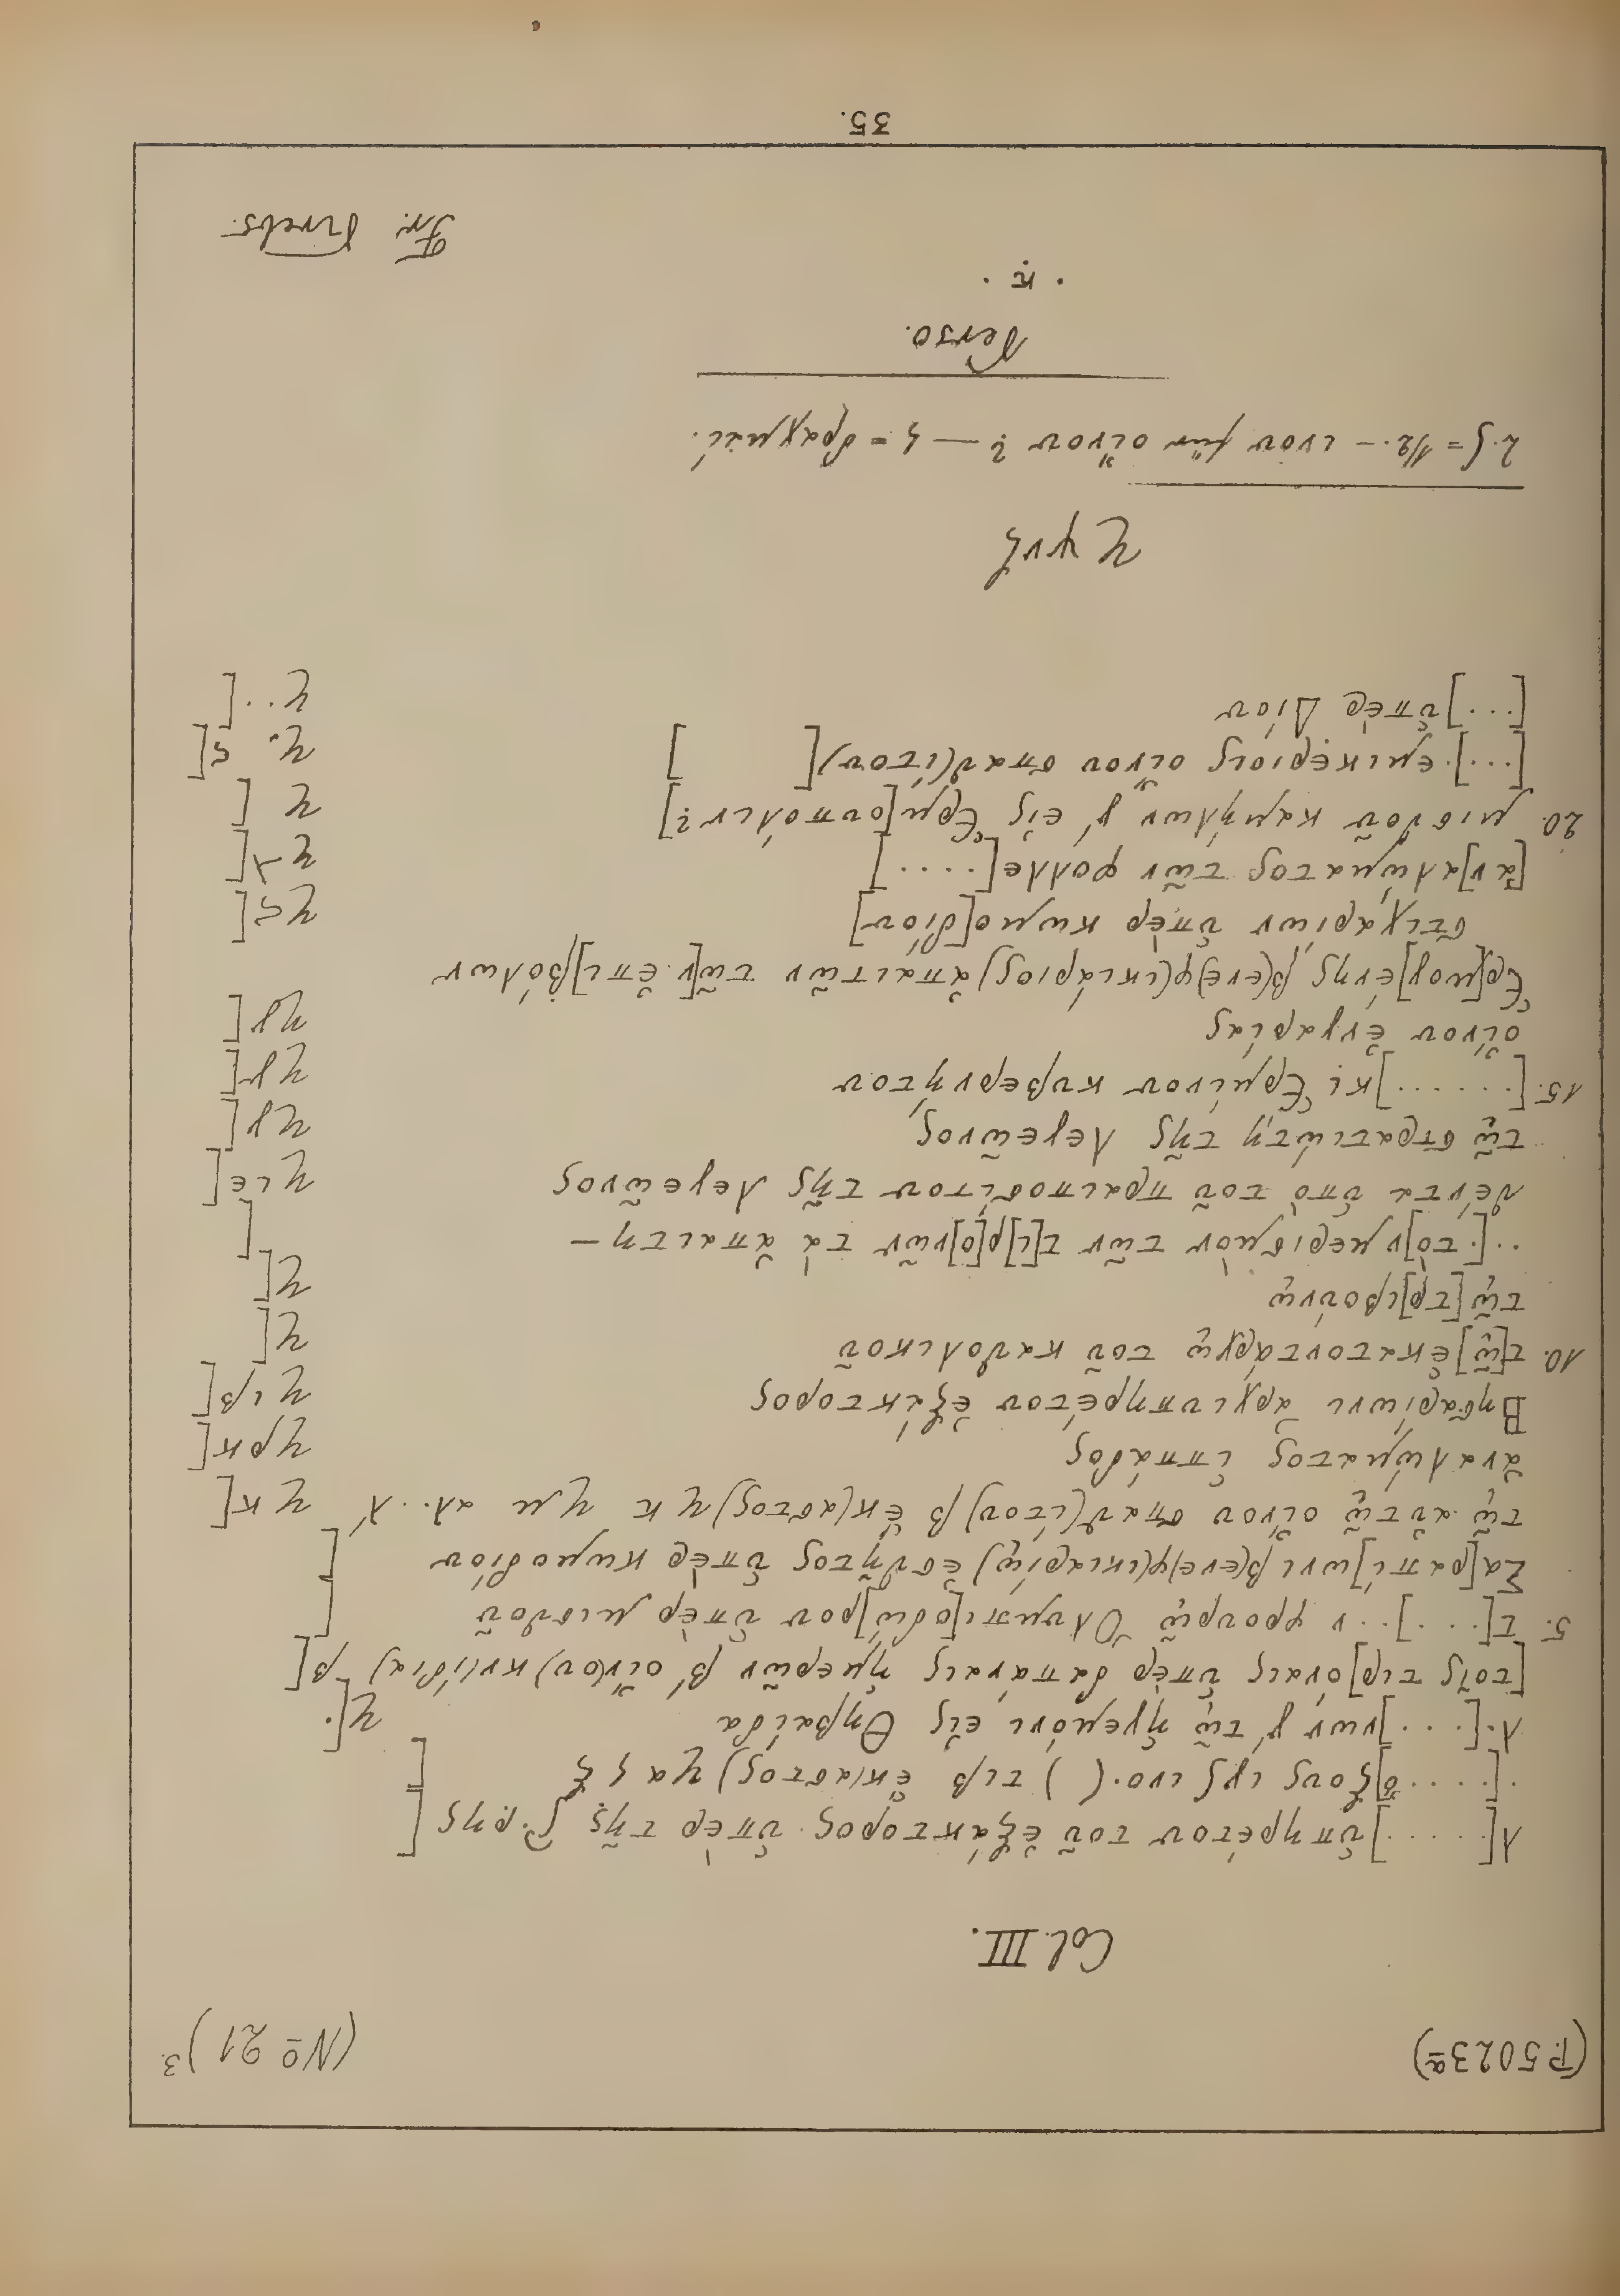 (P. 5023ª)
(Nº 21)3.
Col. III.
λ[.....] ὑπηρέτου τοῦ ἐξάκτορος ὑπὲρ τῆς
.[.... ὄ]ξους ιγς ινο.( ) τιβ ἑκ(άστος)
λ.[....]νων γ´ τῷ ἡγεμόνι εἰς Θηβαίδα
[τοῖς τιρ]όναις ὑπὲρ δαπάναις ἡμερῶν β´ οἴν(ου) κν(ίδια) β[
5. τ[....]..ν φρουρῷ Ὀλυμπι[οδώ]ρου ὑπὲρ μισθοῦ
Σα[ραπί]ωνι β(ενε)φ(ικιαρίῳ) ἐσθῆτος ὑπὲρ κωμοδίου
τῷ αὐτῷ οἴνου σπαθ(ίου) β ἑκ(άστος) κ μ αλ..λ´ κ[
ἀναλώματος ἱππάδος ρκ[
Βησαρίωνι ἀρχιυπηρέτου ἐξάκτορος ιβ[
10. τ[ῷ] ἑκατοντάρχῳ τοῦ καθολικοῦ
τῷ [τρ]ιβούνῳ
..[. τὸ]ν μερισμὸν τῶν τ[ι]ρ[ό]νων τὰ ἀπαιτη-
θέντα ὑπὸ τοῦ πραιποσίτου τῆς λεγεῶνος ιε[
τῷ στρατιώτῃ τῆς λεγεῶνος γ[
15. [......]κι Ἑρμίνου κυβερνήτου γ[
οἴνου ἐνγαρίας γ[
Ἑρ[μογ]ένης β(ενε)φ(ικιάριος) ἀπαιτῶν τῶ[ν ἐπι]βόλων
στιχαρίων ὑπὲρ κωμο[δίου]
[ἀν]αλώματος τῶν φολλε[....]
20. μισθοῦ καμήλων γ´ εἰς Ἑρμ[ουπόλιν?]
[...].εμικερίοις οἴνου σπαθ(ίου)[ ]
[...] ὑπὲρ Δίου
2. ς = 1/2. — ινου für οἴνου? — = δραχμαί.
Verso.
. κ .
Fr. Krebs.
35.